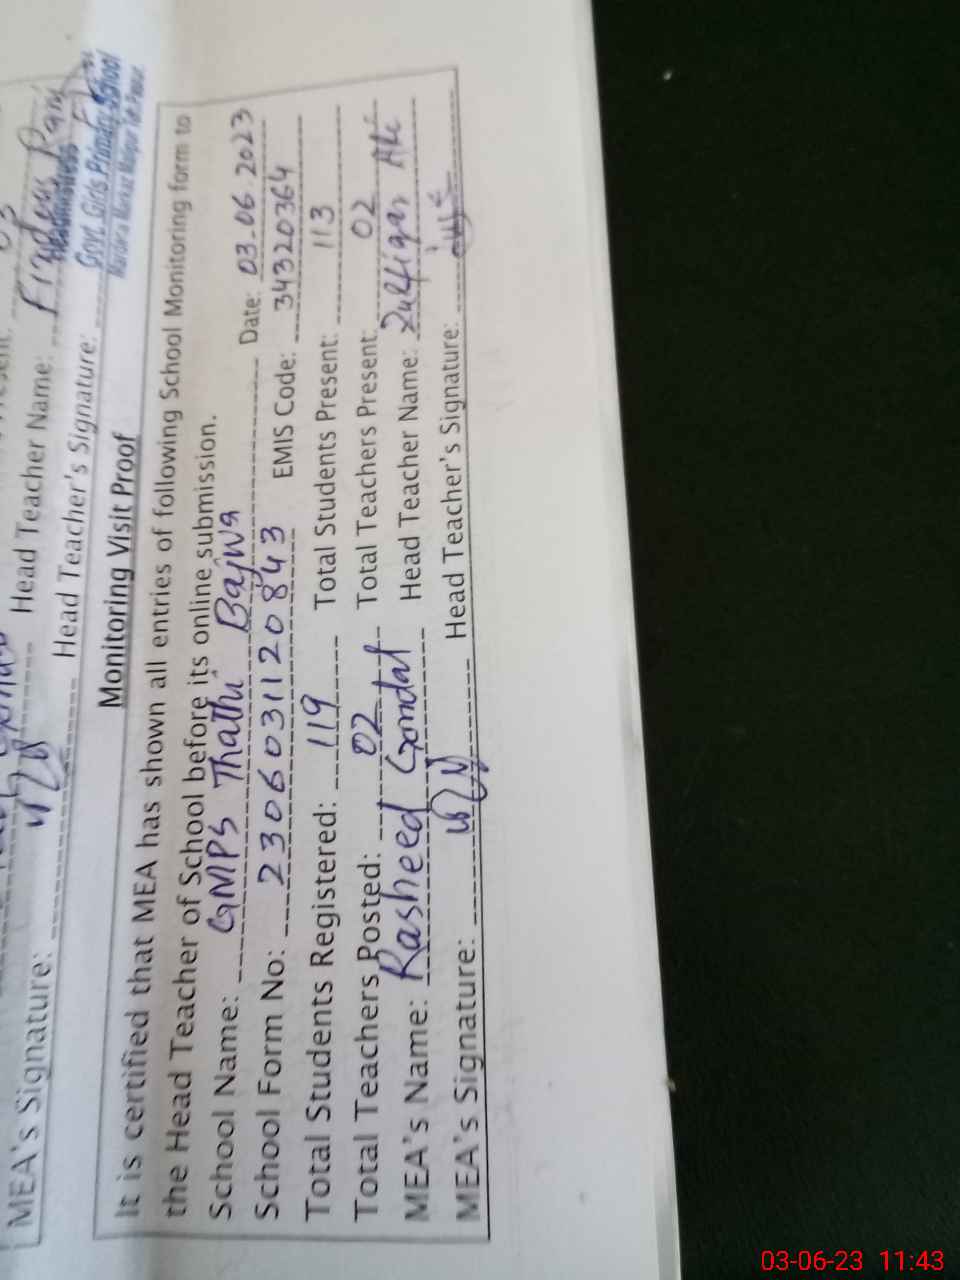 MEA's Signature:
Head Teacher Name: Firdous
Head Teacher's Signature:
Govt. Girls Primary School
Monitoring Visit Proof
It is certified that MEA has shown all entries of following School Monitoring form to
the Head Teacher of School before its online submission.
School Name: GMPS Thathi Bajwa Date: 03.06.2023
School Form No: 230603112 0843 EMIS Code: 34320364
Total Students Registered: 119 Total Students Present: 113
Total Teachers Posted: 02 Total Teachers Present: 02
MEA's Name: Rasheed Gondal Head Teacher Name: Zulfiqar Ali
MEA's Signature: Head Teacher's Signature:
03-06-23 11:43